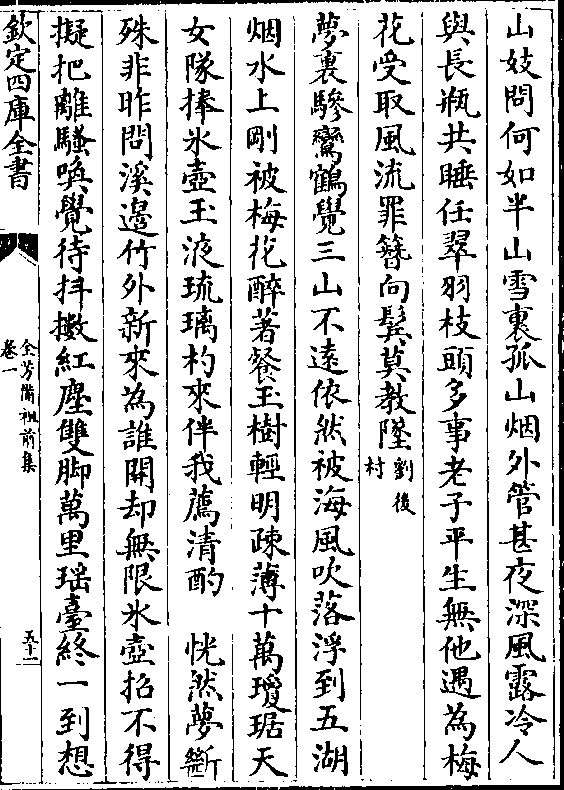 山妓問何如半山雪裏孤山烟外管甚夜深風露冷人
與長瓶共睡任翠羽枝頭多事老子平生無他遇為梅
花受取風流罪簪向髩莫教墜劉後村
夢裏驂鸞鶴覺三山不遠依然被海風吹落浮到五湖
烟水上剛被梅花醉著餐玉樹輕明疎薄十萬瓊琚天
女隊捧氷壺玉液琉璃杓來伴我薦清酌　恍然夢斷
殊非昨問溪邊竹外新來為誰開却無限氷壺招不得
擬把離騷喚覺待抖擻紅塵雙脚萬里瑶臺終一到想
欽定四庫全書
全芳備祖前集
卷一
五十一